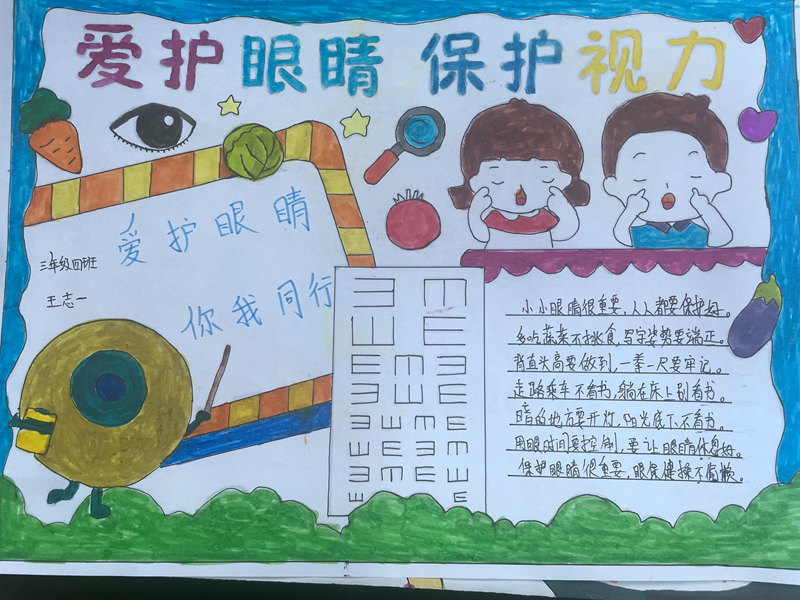 爱护眼睛 保护视力
爱护眼睛
你我同行
三年级四班
王志一
小小眼睛很重要,人人都要保护好。
多吃蔬菜不挑食,写字姿势要端正。
背直头高要做到,一拳一尺要牢记。
走路乘车不看书,躺在床上别看书。
暗的地方要开灯,阳光底下不看书。
用眼时间要控制,要让眼睛休息好。
保护眼睛很重要,眼保健操不偷懒。